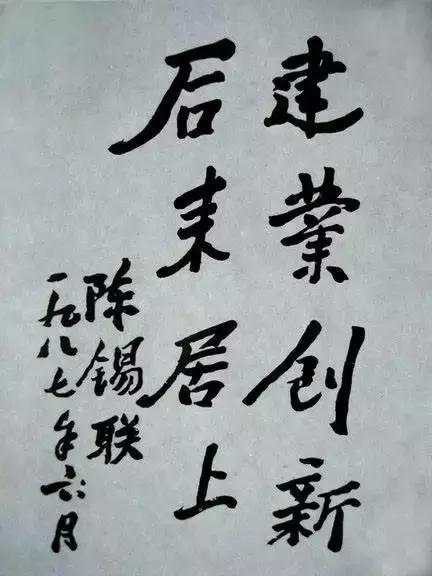 建業创新
后来居上
陈锡联
一九八七年六月